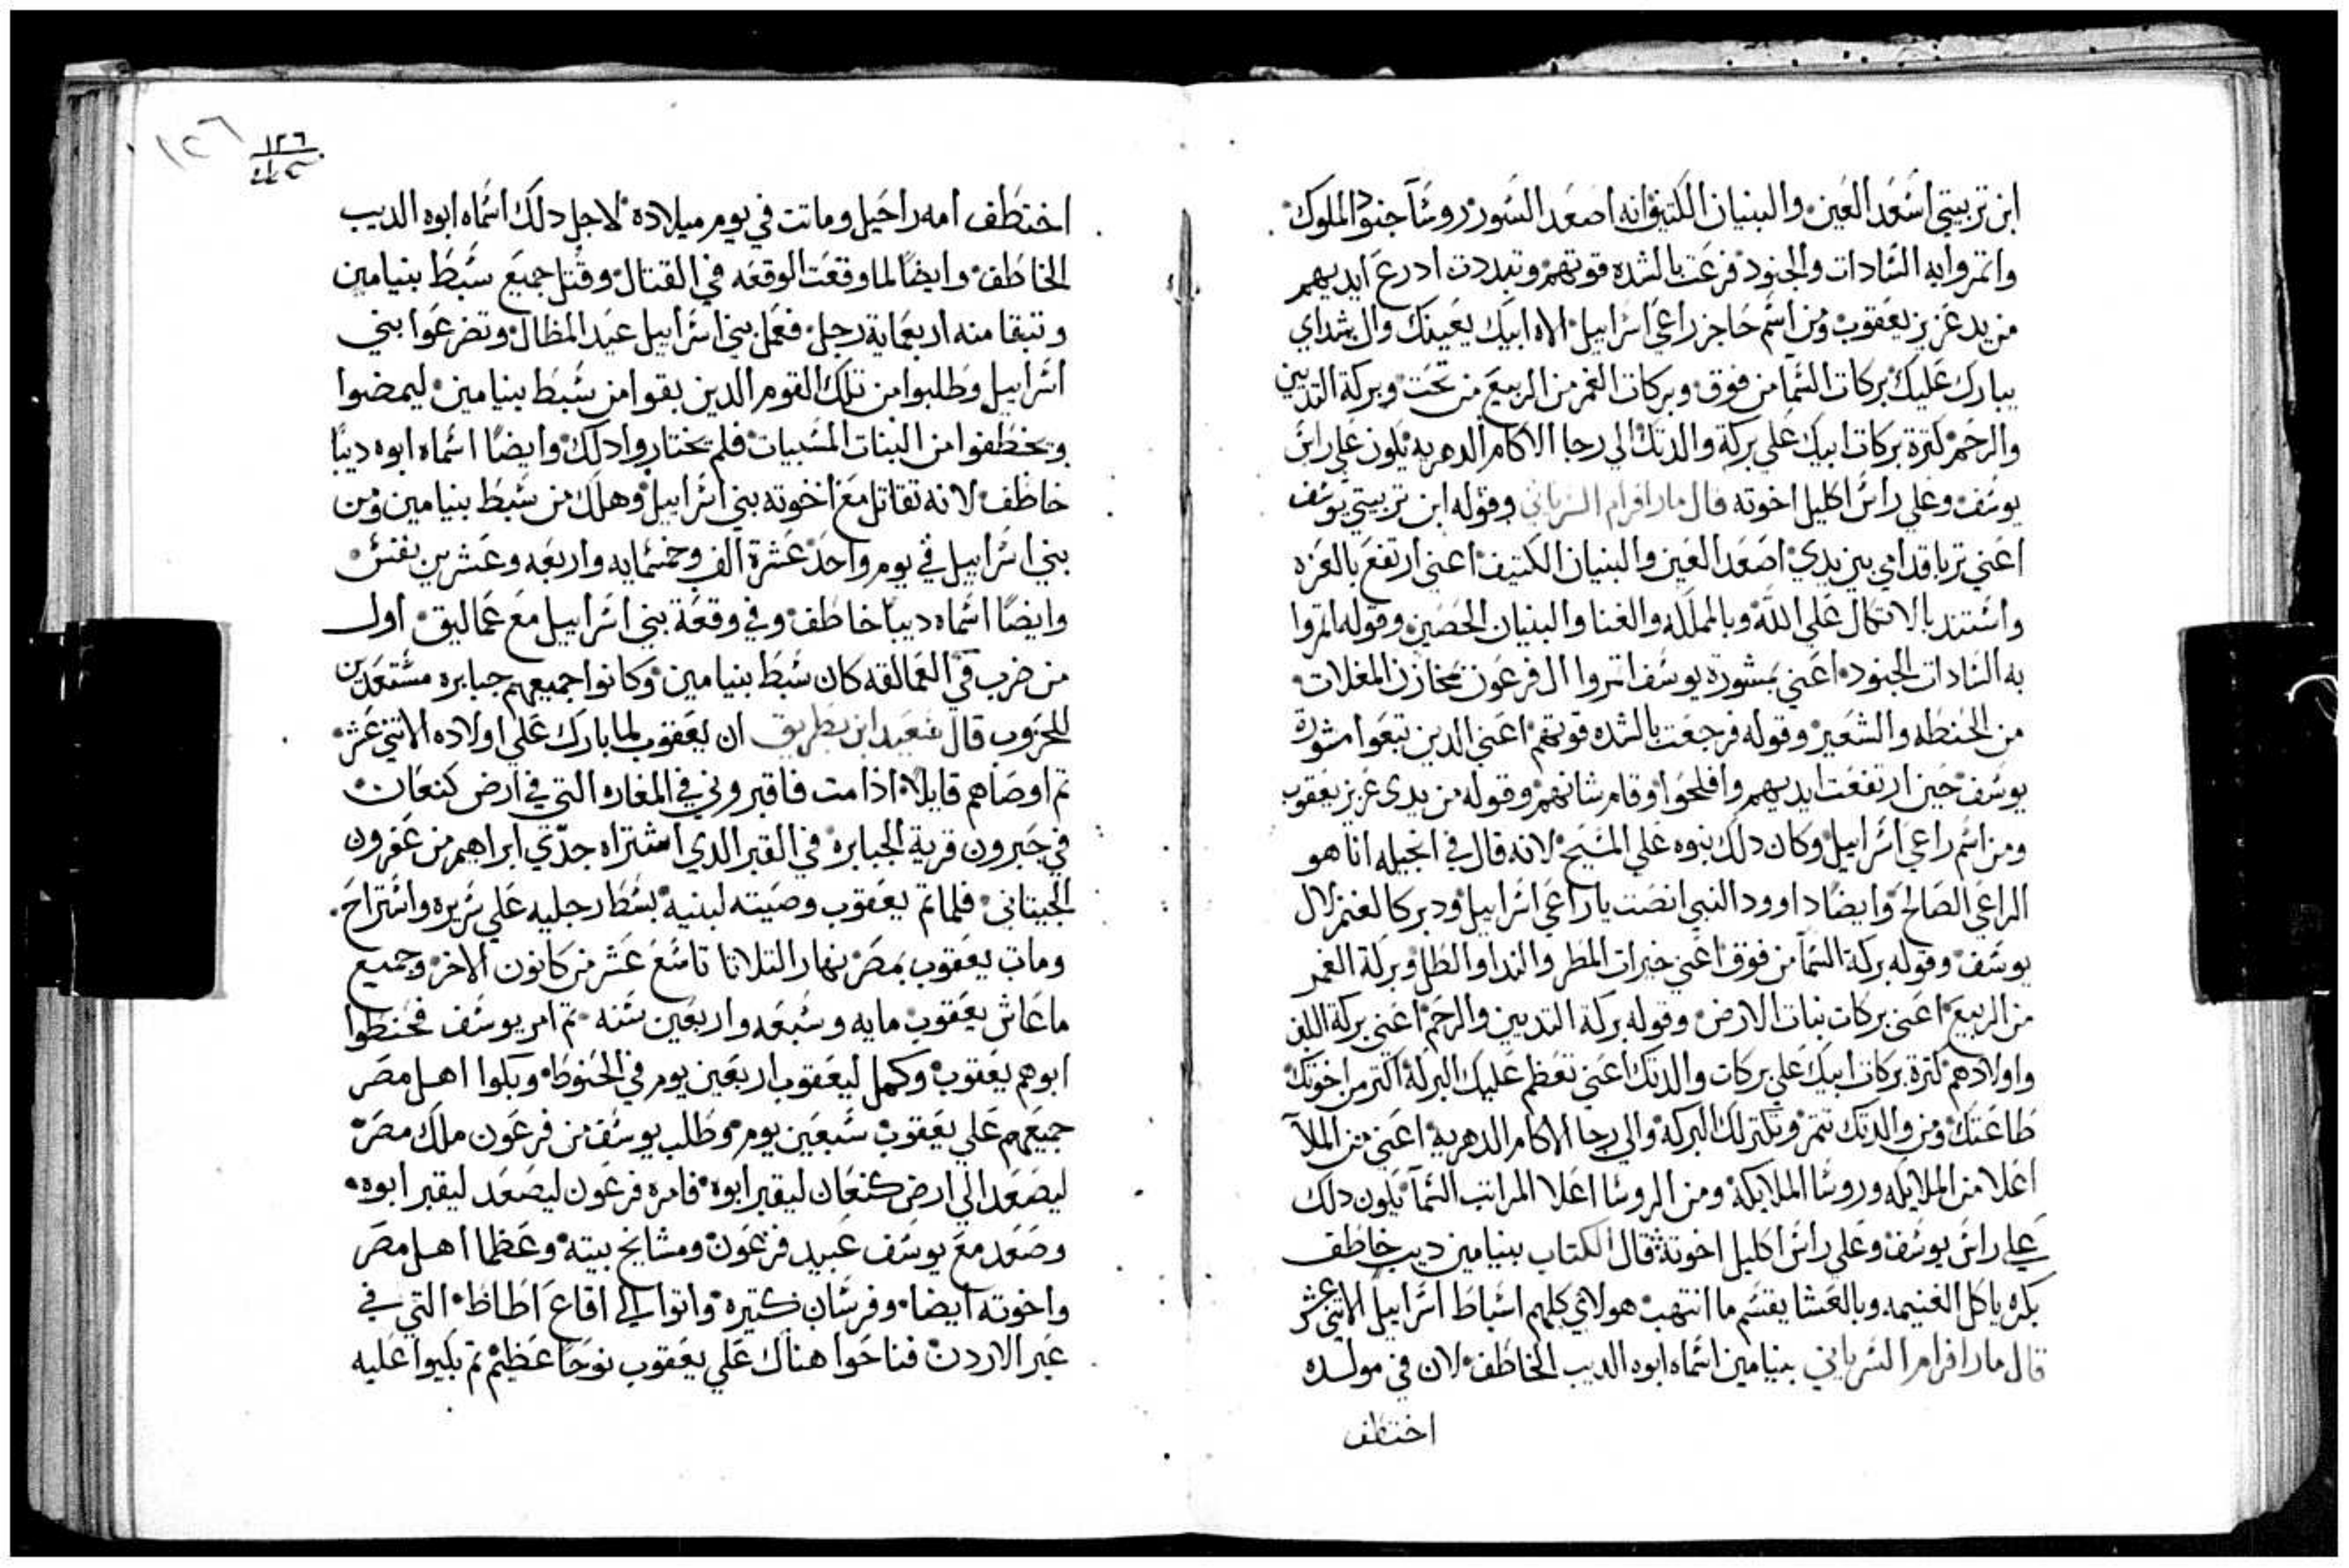 ابن تربيتي اسعد العين والبنيان الكتيف انه اصعد السور روسا جنود الملوك
واتمروا به السادات والجنود فرعت بالشده قوتهم وتبددت ادرع ايديهم
من يد عزيز يعقوب ومن اسم حاجز راعي اسراييل الاه ابيك يعينك وال شداي
يبارك عليك بركات السما من فوق وبركات الغمر من الربيع من تحت وبركة التديين
والرحم كترة بركات ابيك علي بركة والدتك الي رجا الاكام الدهريه تكون علي راس
يوسف وعلي راس اكليل اخوته قال مار افرام السرياني وقوله ابن تربيتي يوسف
اعني تربا قدامي بين يدي اصعد العين والبنيان الكتيف اعني ارتفع بالعزه
واستند بالاتكال علي الله وبالمملكه والغنا والبنيان الحصين وقوله اتمروا
به السادات الجنود اعني بمشورة يوسف اتمروا ال فرعون مخازن المغلات
من الحنطه والشعير وقوله فرجعت بالشده قوتهم اعني الدين تبعوا مشورة
يوسف حين ارتفعت ايديهم وافلحوا وقام شانهم وقوله من يدي عزيز يعقوب
ومن اسم راعي اسراييل وكان دلك نبوه علي المسيح لانه قال في انجيله انا هو
الراعي الصالح وايضا داوود النبي انصت ياراعي اسراييل ودبر كالغنم لال
يوسف وقوله بركة السما من فوق اعني خيرات المطر والندا والطل وبركة الغمر
من الربيع اعني بركات نبات الارض وقوله بركة التديين والرحم اعني بركة اللبن
واولادهم كترة بركات ابيك علي بركات والدتك اعني تعظم عليك البركه اكتر من اخوتك
طاعتك ومن والدتك تتمر وتكتر لك البركه والي رجا الاكام الدهريه اعني من الملا
اعلا من الملايكه وروسا الملايكه ومن الروسا اعلا المراتب السما يكون دلك
علي راس يوسف وعلي راس اكليل اخوته قال الكتاب بنيامين ديب خاطف
بكره ياكل الغنيمه وبالعشا يقسم ما انتهب هولاي كلهم اسباط اسراييل الاتني عشر
قال مار افرام السرياني بنيامين اسماه ابوه الديب الخاطف لان في مولده
اختطف
١٢٦
١٢٦
اختطف امه راحيل وماتت في يوم ميلاده لاجل دلك اسماه ابوه الديب
الخاطف وايضا لما وقعت الوقعه في القتال وقتل جميع سبط بنيامين
وتبقا منه اربعماية رجل فعمل بني اسراييل عيد المظال وتضرعوا بني
اسراييل وطلبوا من تلك القوم الدين بقوا من سبط بنيامين ليمضوا
ويخطفوا من البنات المسبيات فلم يختاروا دلك وايضا اسماه ابوه ديبا
خاطف لانه تقاتل مع اخوته بني اسراييل وهلك من سبط بنيامين ومن
بني اسراييل في يوم واحد عشرة الف وخمسمايه واربعه وعشرين نفس
وايضا اسماه ديبا خاطف وفي وقعة بني اسراييل مع عماليق اول
من ضرب في العمالقه كان سبط بنيامين وكانوا جميعهم جبابره مستعدين
للحروب قال سعيد ابن بطريق ان يعقوب لما بارك علي اولاده الاتني عشر
تم اوصاهم قايلا اذا مت فاقبروني في المغاره التي في ارض كنعان
في حبرون قرية الجبابره في القبر الدي اشتراه جدي ابراهيم من عفرون
الجيتاني فلما تم يعقوب وصيته لبنيه بسط رجليه علي سريره واستراح
ومات يعقوب بمصر نهار التلاتا تاسع عشر من كانون الاخر وجميع
ما عاش يعقوب مايه وسبعه واربعين سنه تم امر يوسف فحنطوا
ابوهم يعقوب وكمل ليعقوب اربعين يوم في الحنوط وبكوا اهل مصر
جميعهم علي يعقوب سبعين يوم وطلب يوسف من فرعون ملك مصر
ليصعد الي ارض كنعان ليقبر ابوه فامره فرعون ليصعد ليقبر ابوه
وصعد مع يوسف عبيد فرعون ومشايخ بيته وعظما اهل مصر
واخوته ايضا وفرسان كتيره واتوا الي اقاع اطاط التي في
عبر الاردن فناحوا هناك علي يعقوب نوحا عظيم تم بكيوا عليه